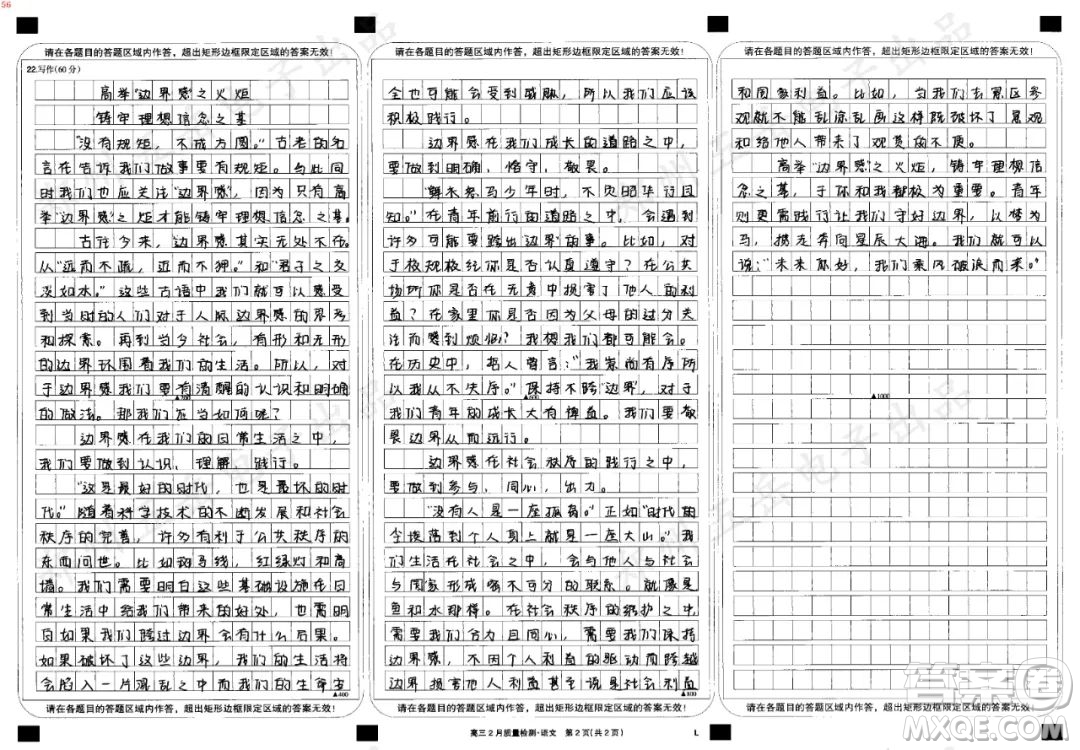 56
请在各题目的答题区域内作答，超出矩形边框限定区域的答案无效！
22.写作(60分)
高举“边界感”之火炬
铸守理想信念之基
“没有规矩，不成方圆。”古老的名
言在告诉我们做事要有规矩。与此同
时我们也应关注“边界感”，因为只有高
举“边界感”之炬才能铸牢理想信念之基。
古往今来，“边界感”其实无处不在。
从“远而不疏，近而不狎。”和“君子之交
淡如水。”这些古语中我们就可以感受
到当时的人们对于人际边界感的思考
和探索。再到当今社会，有形和无形
的边界环围着我们的生活。所以，对
于边界感我们要有清醒的认识和明确
的做法。那我们应当如何呢？
边界感在我们的日常生活之中，
我们要做到认识、理解、践行。
“这是最好的时代，也是最坏的时
代。”随着科学技术的不断发展和社会
秩序的完善，许多有利于公共秩序的
东西问世。比如斑马线，红绿灯和高
墙。我们需要明白这些基础设施在日
常生活中给我们带来的好处，也需明
白如果我们跨过边界会有什么后果。
如果破坏了这些边界，我们的生活将
会陷入一片混乱之中而我们的生命安
▲400
请在各题目的答题区域内作答，超出矩形边框限定区域的答案无效！
请在各题目的答题区域内作答，超出矩形边框限定区域的答案无效！
全也可能会受到威胁，所以我们应该
积极践行。
边界感在我们成长的道路之中，
要做到明确、恪守、敬畏。
“鲜衣怒马少年时，不负韶华行且
知。”在青年前行的道路之中，会遇到
许多可能要跨出“边界”的事。比如，对
于校规校纪你是否认真遵守？在公共
场所你是否在无意中损害了他人的利
益？在家里你是否因为父母的过分关
注而感到烦恼？我想我们都可能会。
在历史中，哲人曾言：“我崇尚有序所
以我从不失序。”保持不跨“边界”，对于
我们青年的成长大有裨益。我们要敬
畏边界从而远行。
边界感在社会秩序的践行之中，
要做到参与、同心、出力。
“没有人是一座孤岛。”正如“时代的
尘埃落到个人身上就是一座大山。”我
们生活在社会之中，会与他人与
与国家形成密不可分的联系。就像是
鱼和水那样。在社会秩序的维护之中
需要我们合力且同心，需要我们保持
边界感，不因个人利益的驱动而跨越
边界损害他人利益甚至说是社会利益
▲600
▲800
请在各题目的答题区域内作答，超出矩形边框限定区域的答案无效！
高三2月质量检测·语文 第2页(共2页)
请在各题目的答题区域内作答，超出矩形边框限定区域的答案无效！
和国家利益。比如，当我们去景区参
观就不能乱涂乱画这样既破坏了景观
和给他人带来了观赏的不便。
高举“边界感”之火炬，铸牢理想信
念之基，于你和我都极为重要。青年
则更需践行让我们守好边界，以梦为
马，携志奔向星辰大海。我们就可以
说：“未来你好，我们乘风破浪而来。”
▲1000
请在各题目的答题区域内作答，超出矩形边框限定区域的答案无效！
L
答案圈
MXQE.COM